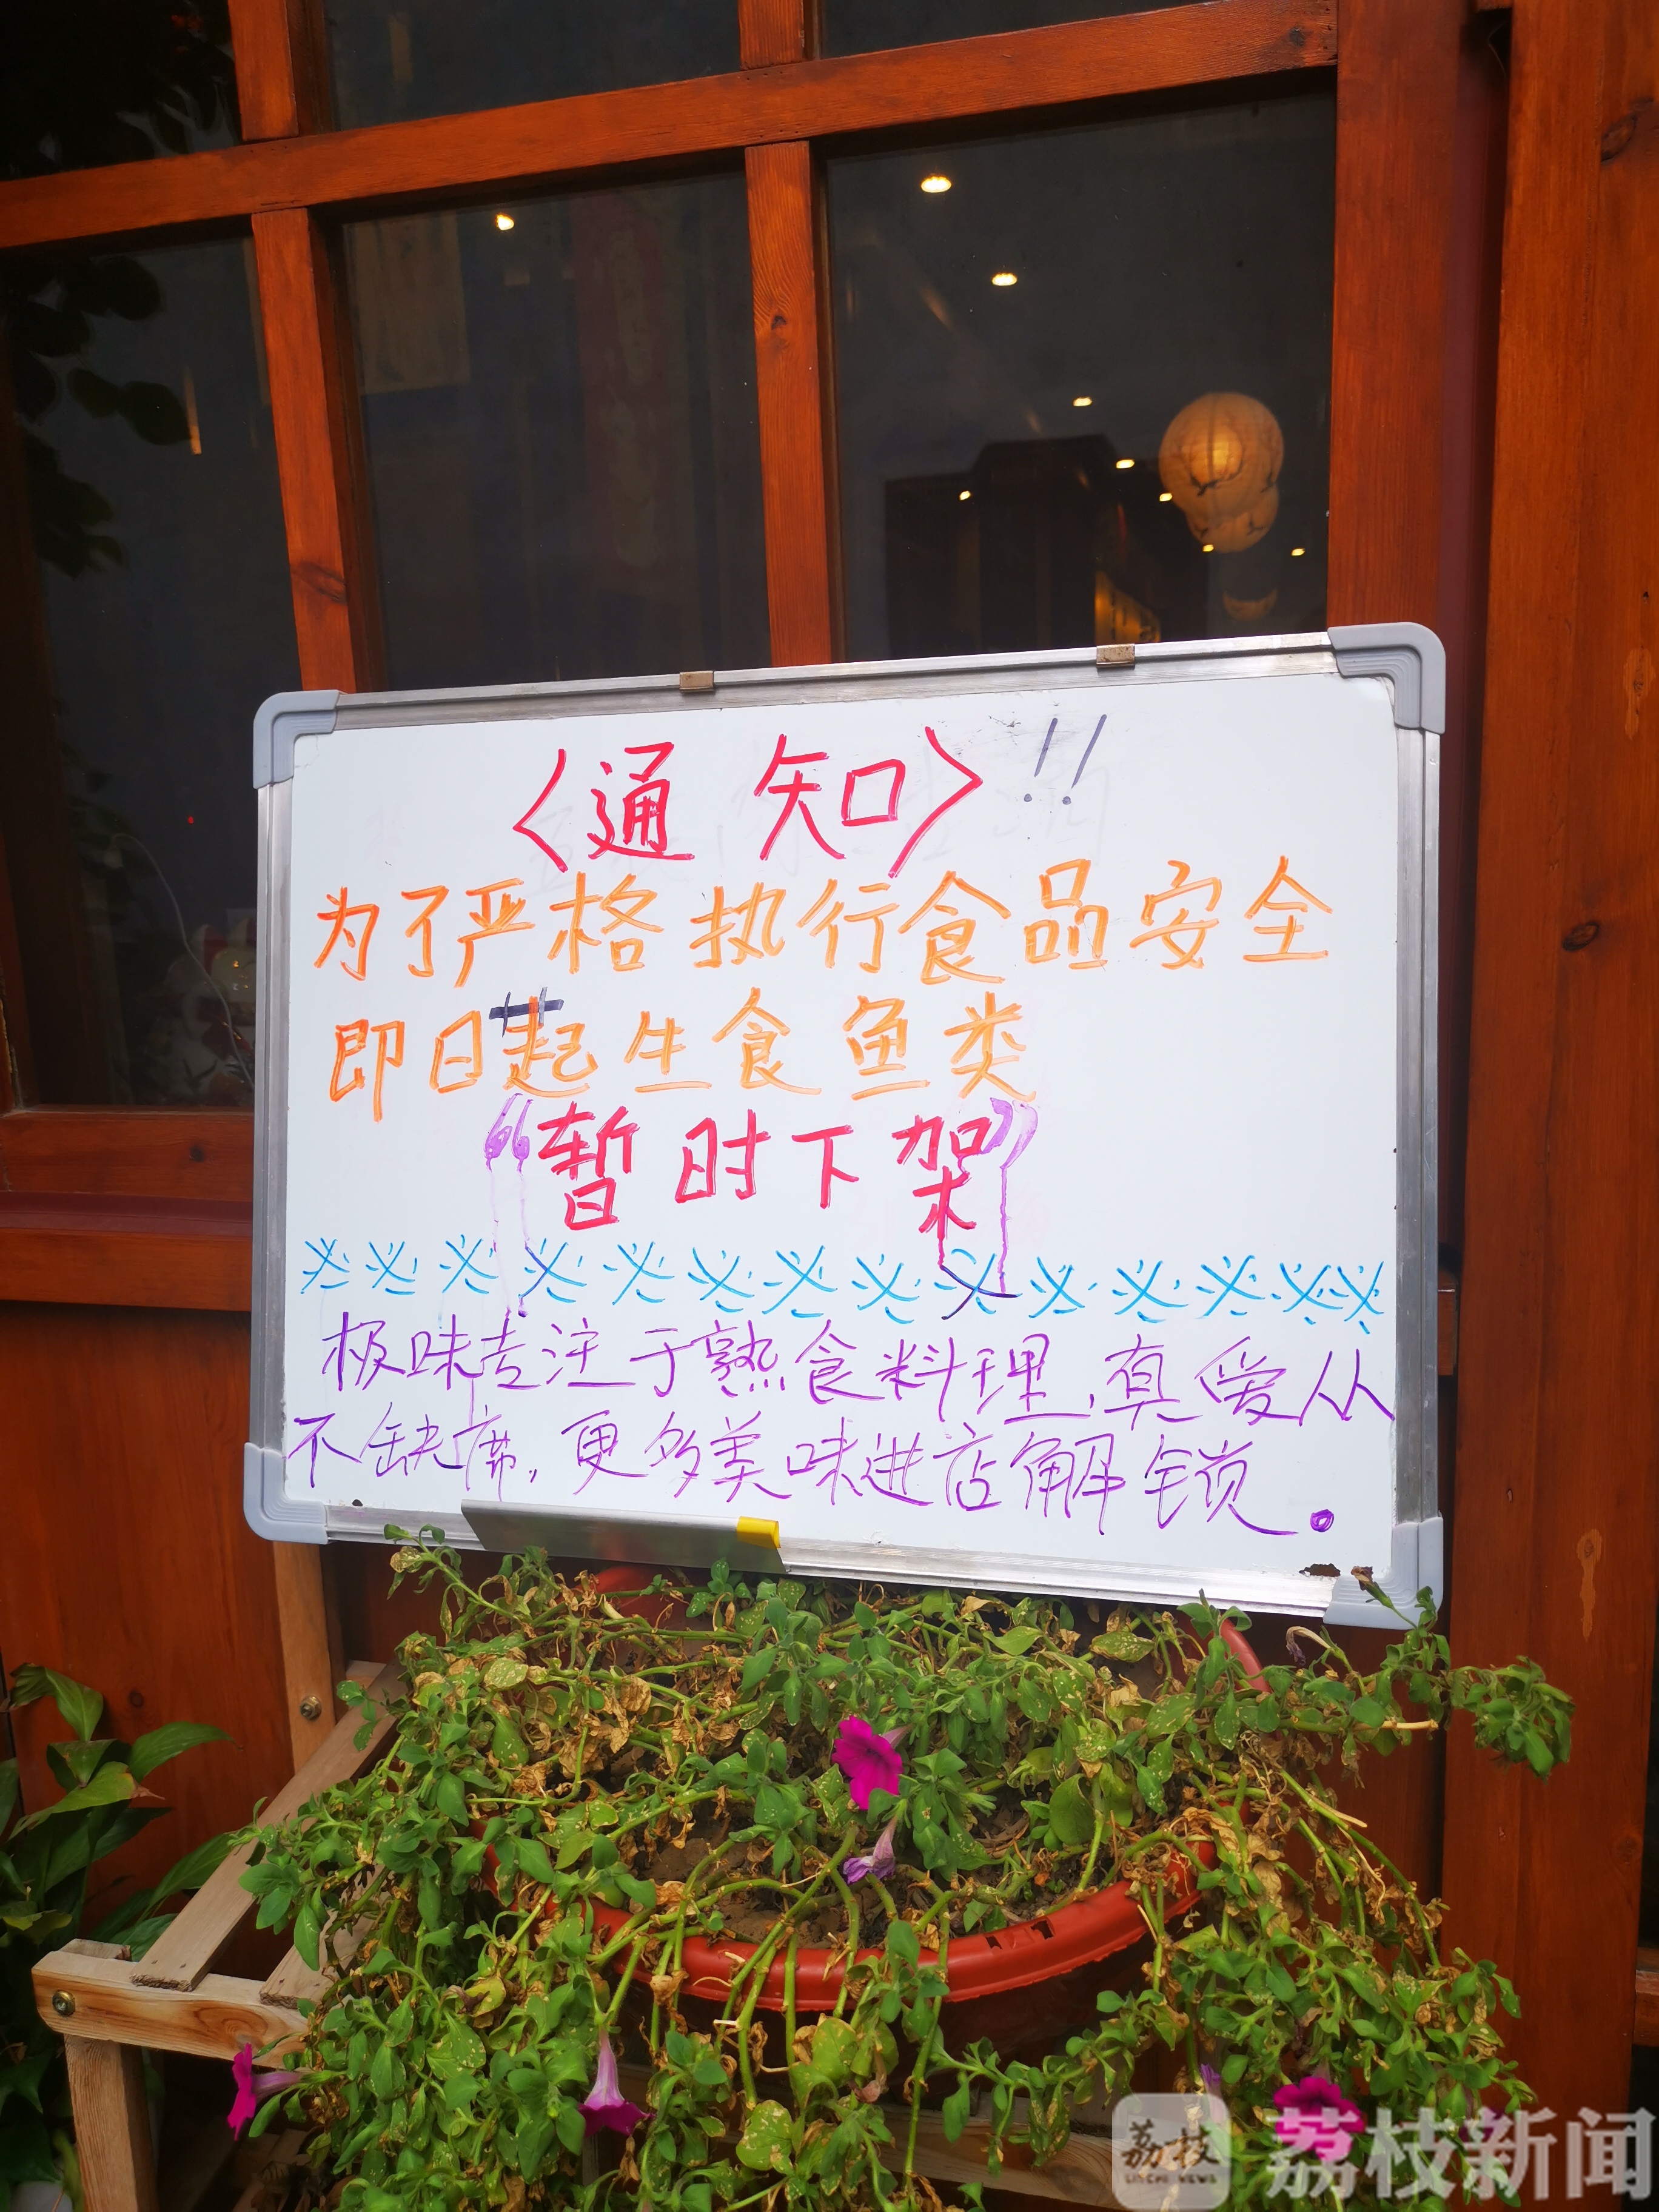 〈通知〉!!
为了严格执行食品安全
即日起生食鱼类
“暂时下架”
极味专注于熟食料理，真爱从
不缺席，更多美味进店解锁。
荔枝
LITCHI NEWS
荔枝新闻